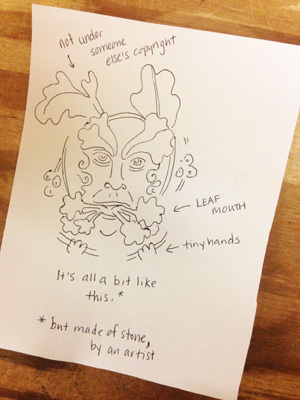 not under
someone
else's copyright
LEAF
MOUTH
tiny hands
It's all a bit like
this.*
* but made of stone,
by an artist